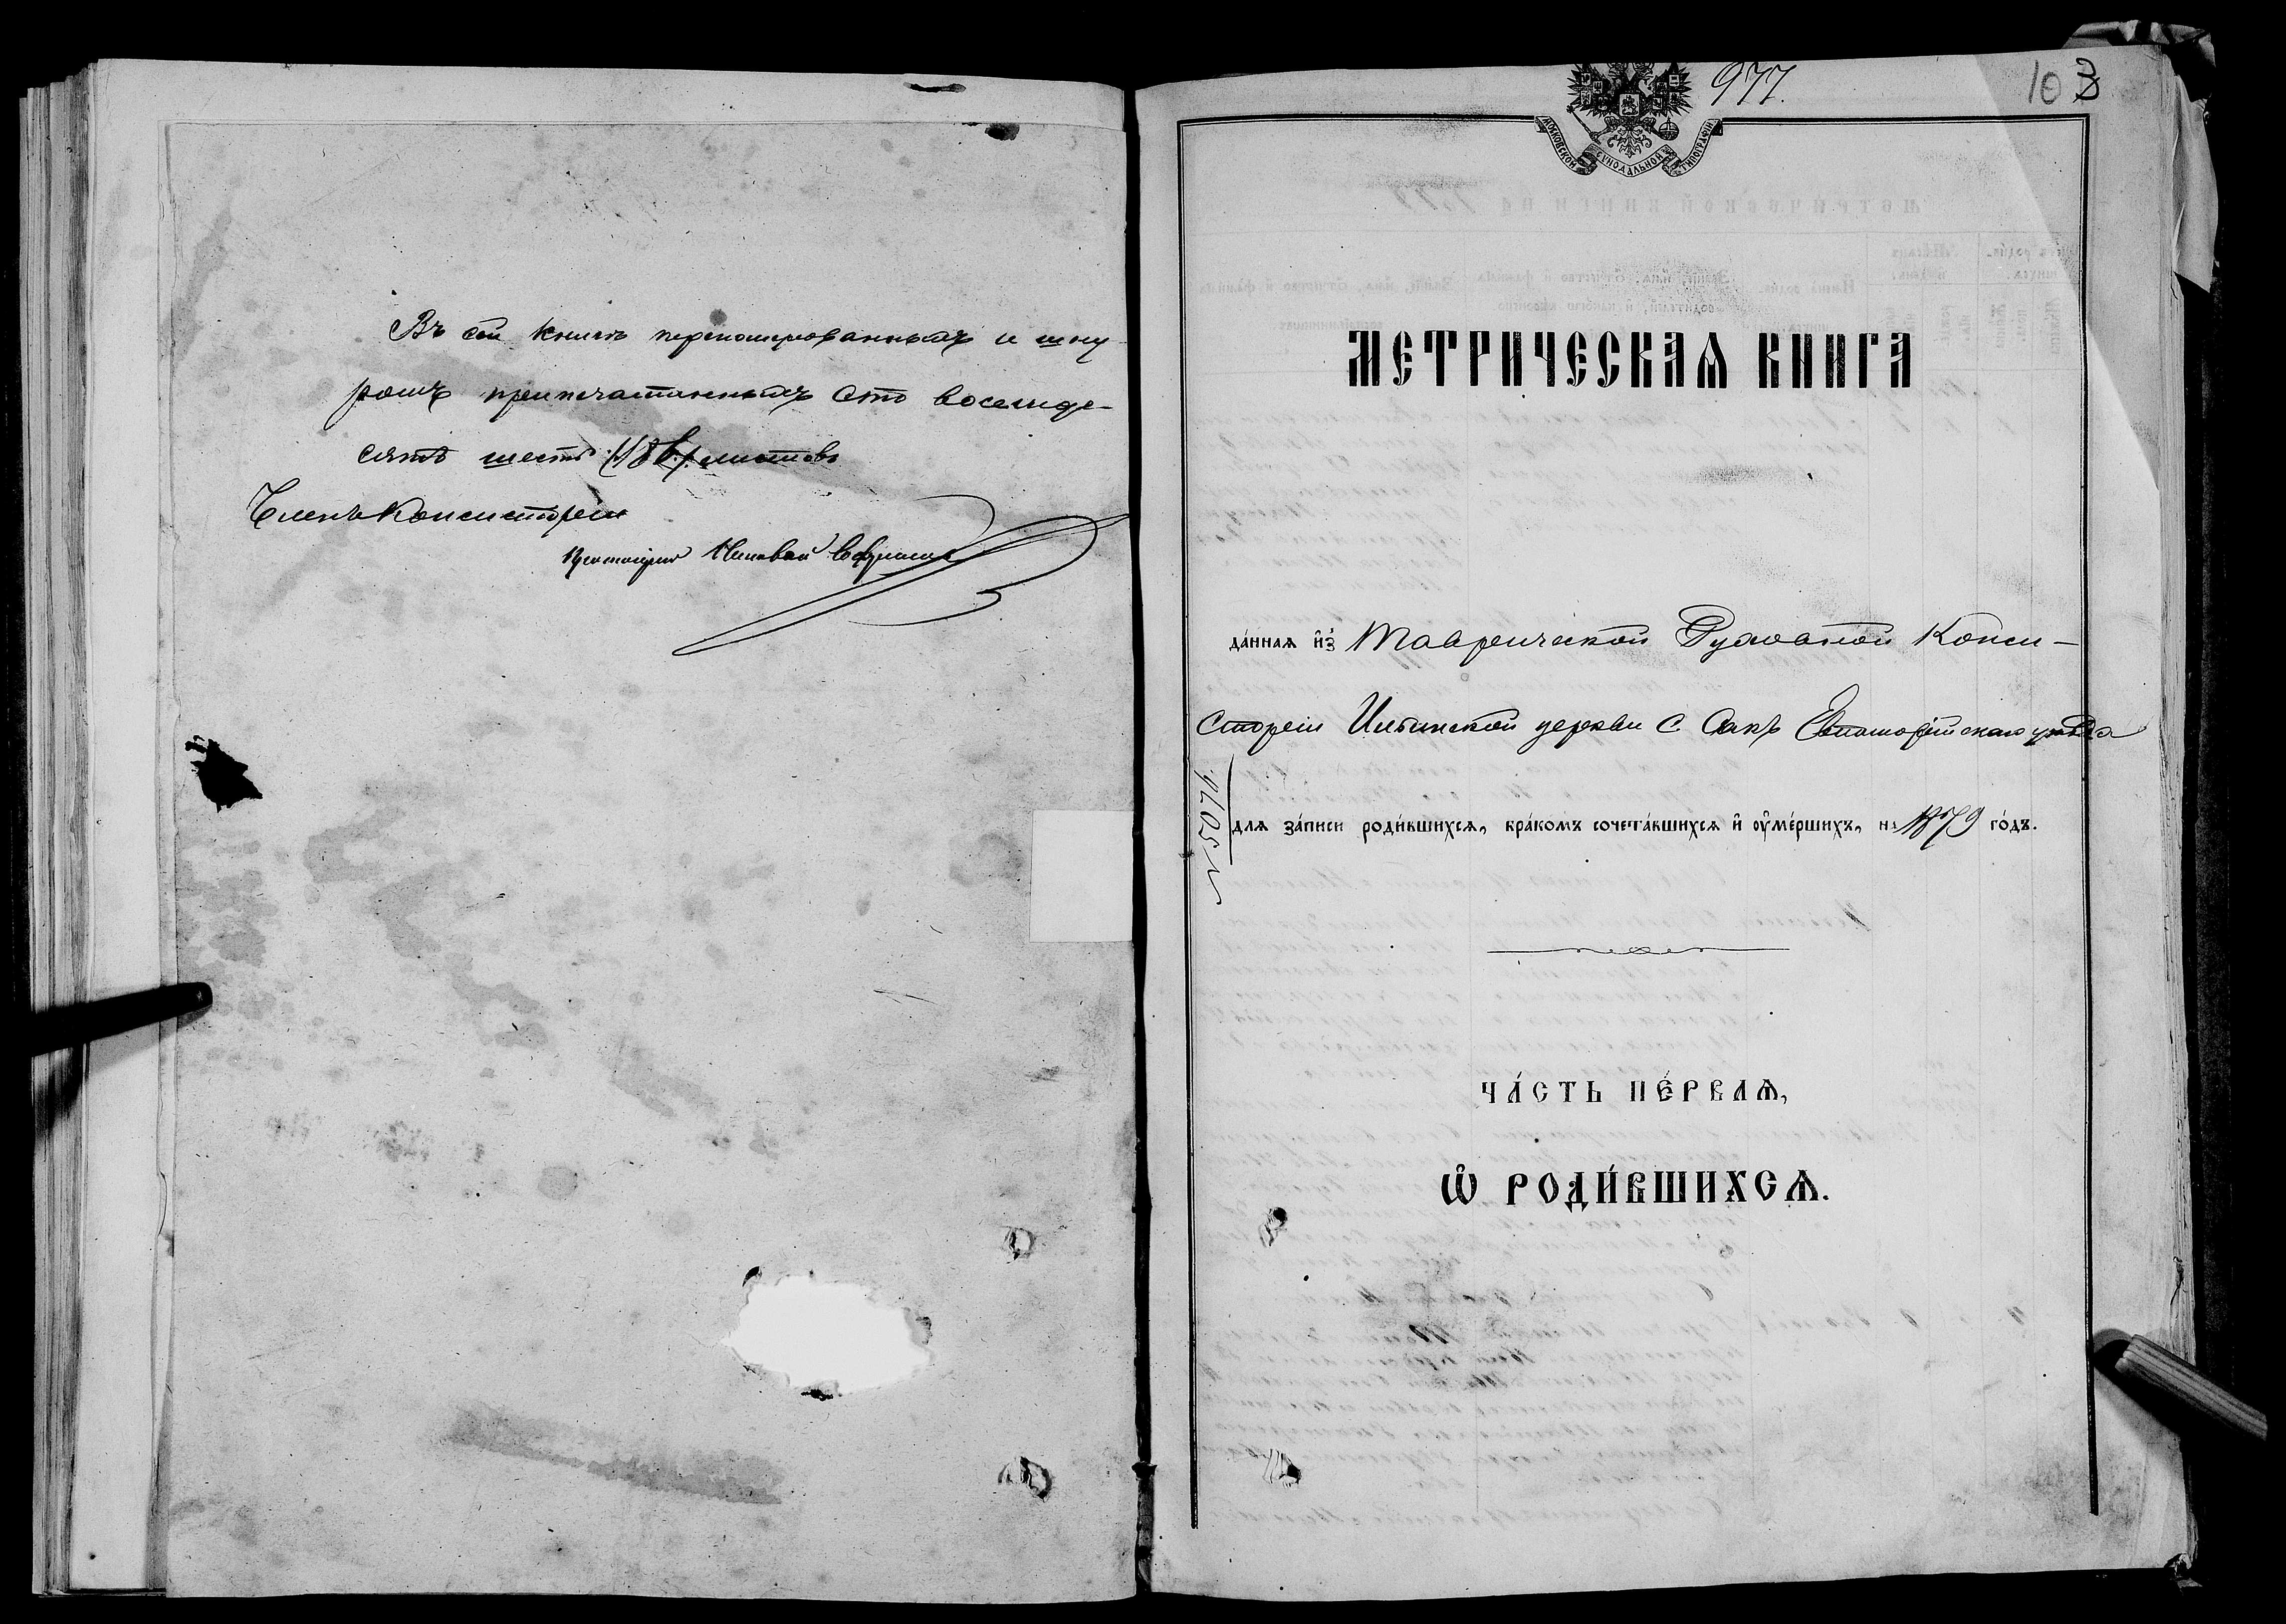 Въ сей книгѣ перенумерованныхъ и шну
ромъ припечатанныхъ Сто восемьде-
сятъ шесть (186) листовъ
Членъ Консисторіи
Протоіерей
977.
10 3
МОСКОВСКОЙ СѴНОДАЛЬНОЙ ТИПОГРАФІИ
МЕТРИЧЕСКАѦ КНИГА
да́ннаѧ и҆з̾ Таврической Духовной Конси-
сторіи Ильинской церкви С. Сакъ Евпаторійскаго уѣзда
длѧ за́писи роди́вшихсѧ, бра́комъ сочета́вшихсѧ и҆ оу҆ме́ршихъ, на 1879 го́дъ.
ЧА́СТЬ ПЕ́РВАѦ,
Ѡ҆ РОДИ́ВШИХСѦ.